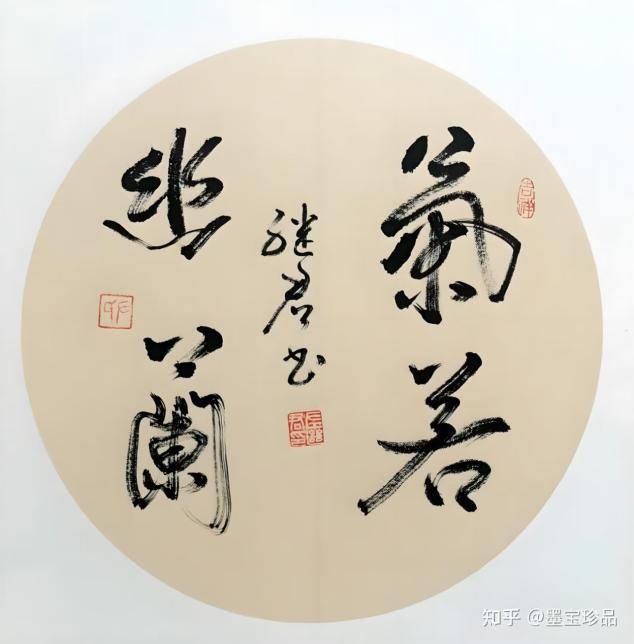 氣若
幽蘭
继君书
知乎 @墨宝珍品